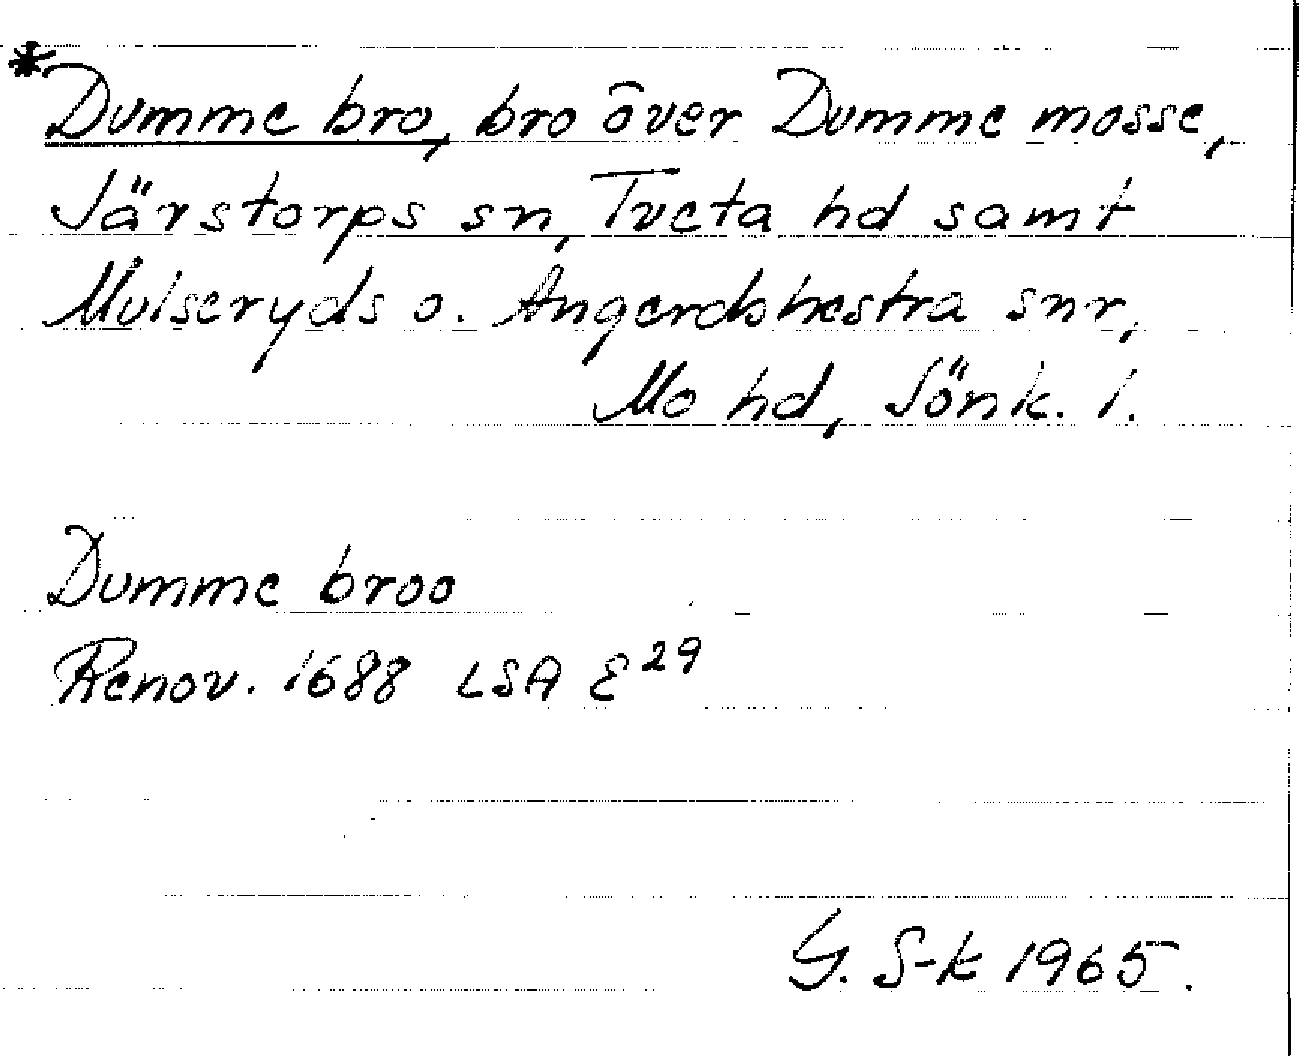 *Dumme bro, bro över Dumme mosse,
Järstorps sn, Tveta hd samt
Mulseryds o. Angerdshestra snr,
Mo hd, Jönk. l.
Dumme broo
Renov. 1688 LSA E 29
G. S-k 1965.